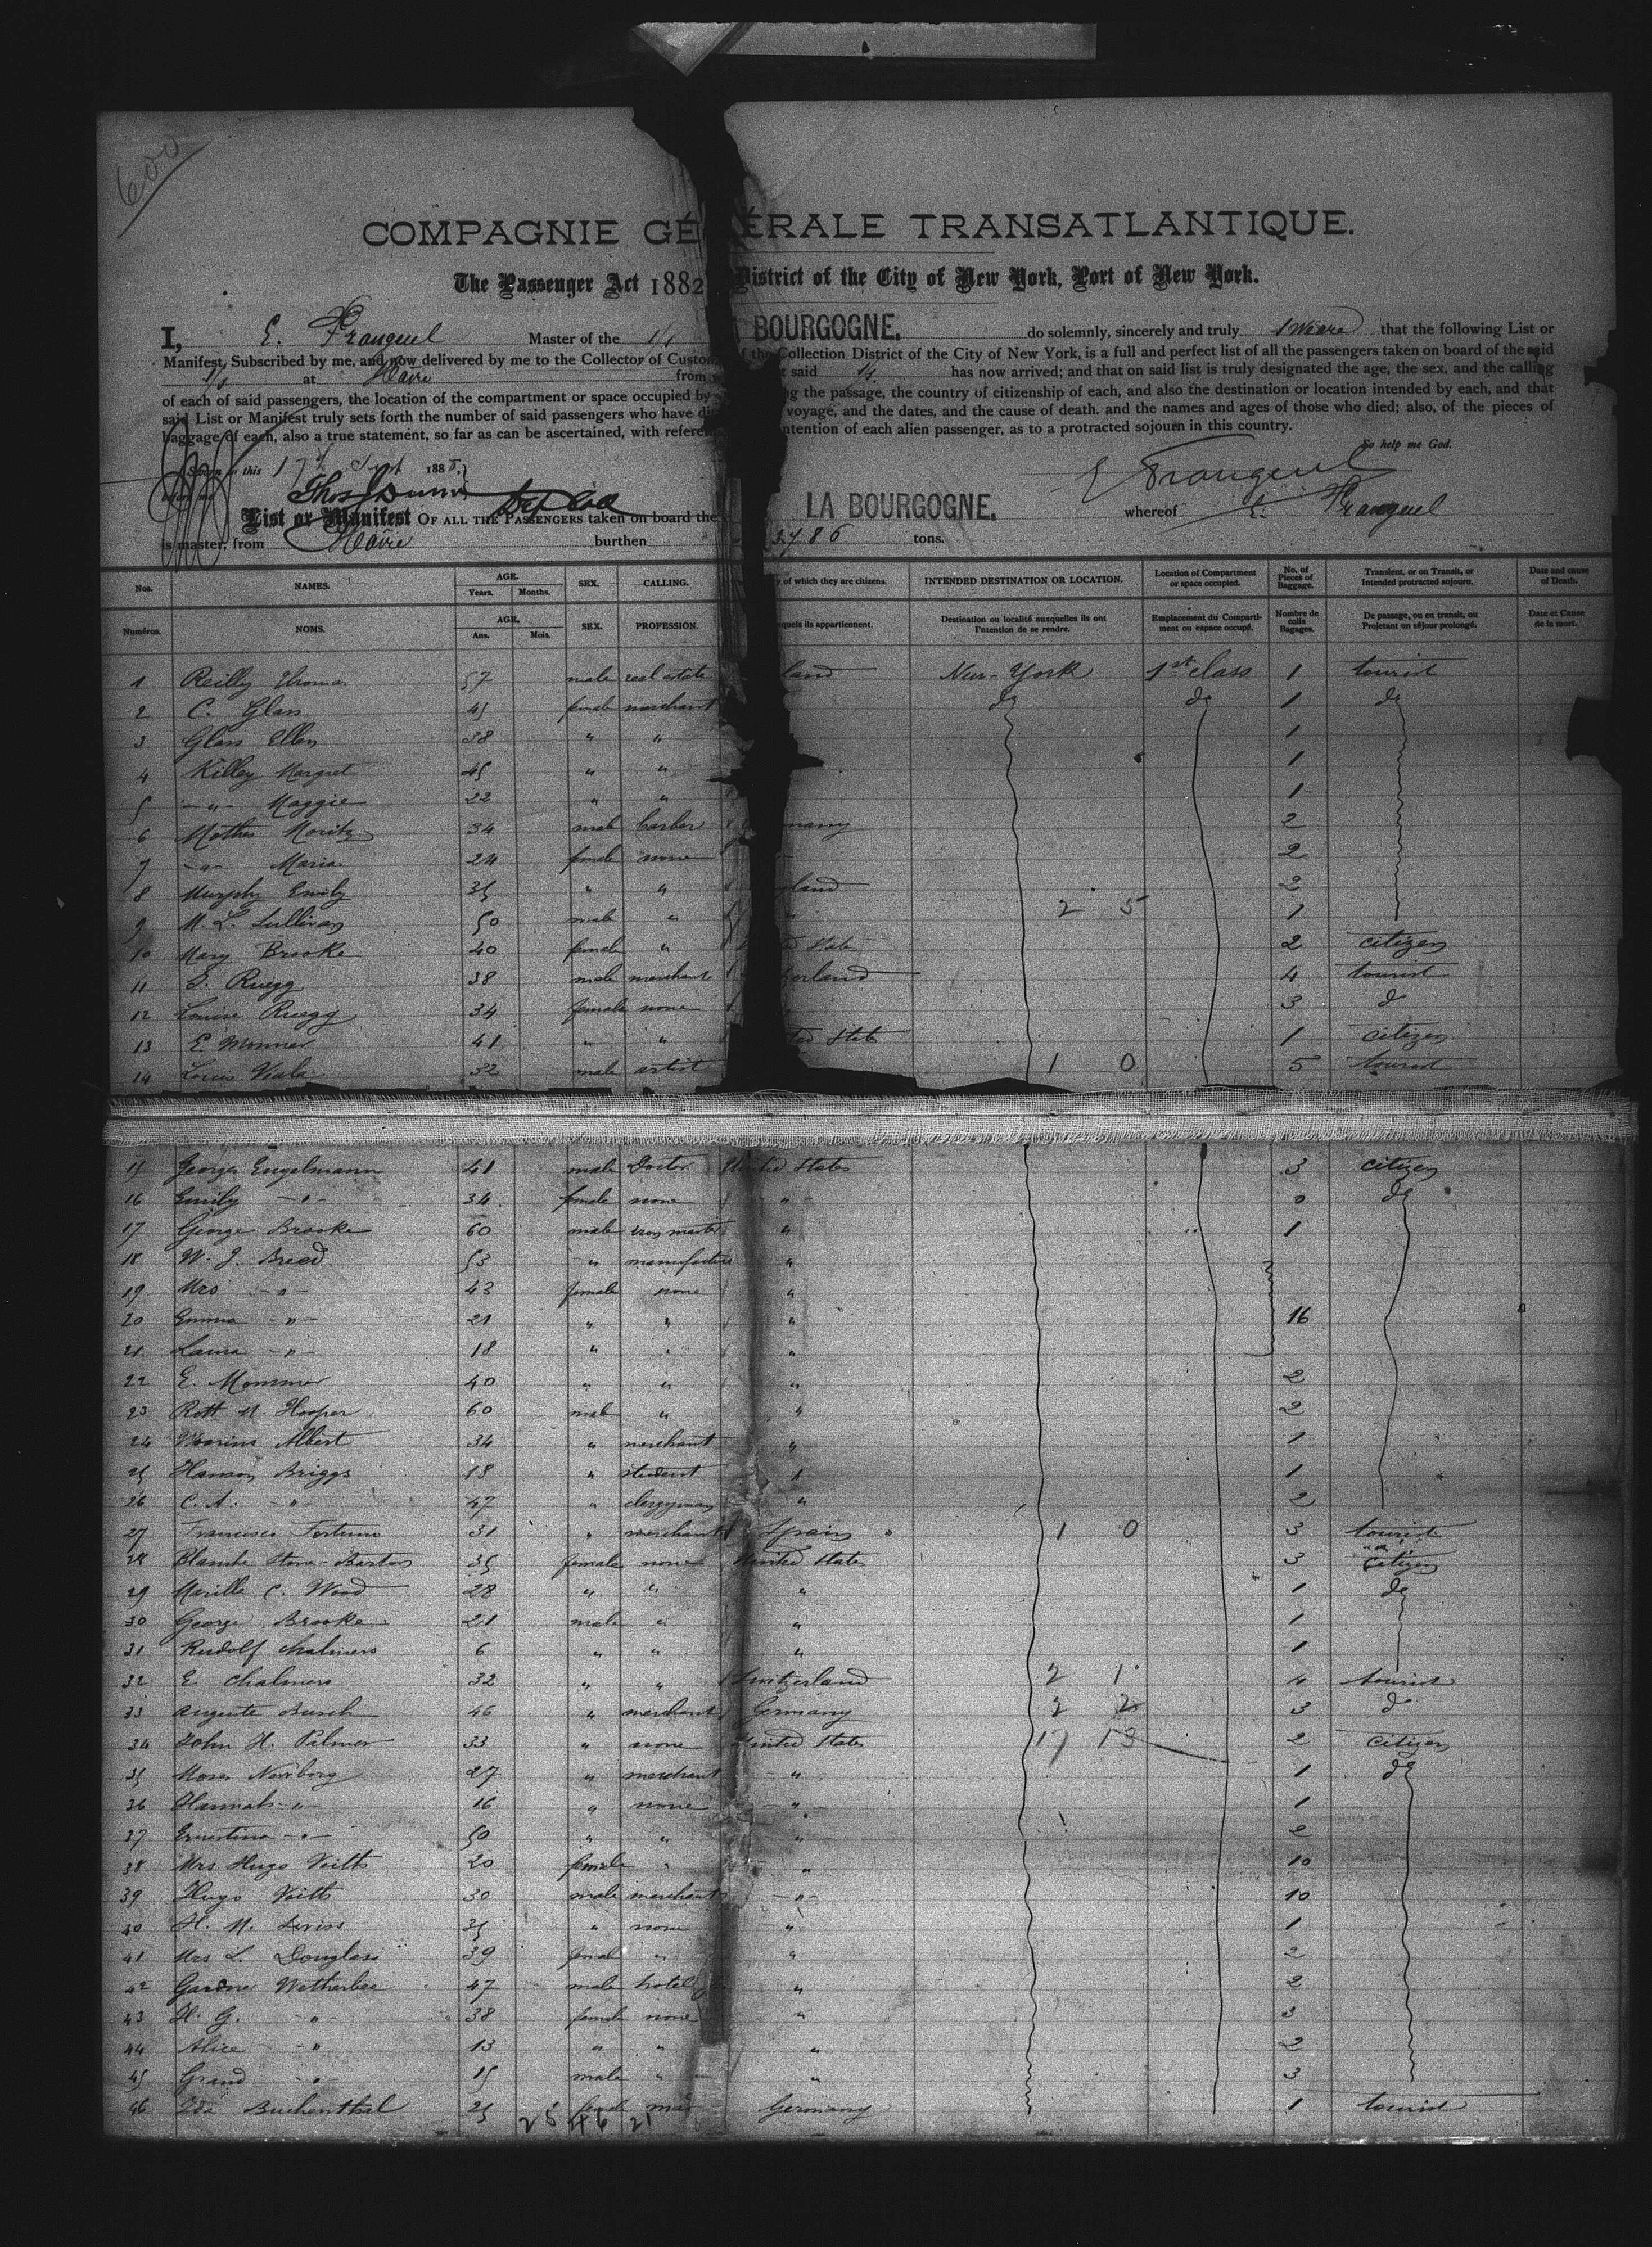 600
COMPAGNIE GÉ ÉRALE TRANSATLANTIQUE.
The Passenger Act 1882 District of the City of New York, Port of New York.
I, E. Frangeul Master of the BOURGOGNE. do solemnly, sincerely and truly swear that the following List or
Manifest, Subscribed by me, and now delivered by me to the Collector of Custom of the Collection District of the City of New York, is a full and perfect list of all the passengers taken on board of the said
at Havre from said has now arrived; and that on said list is truly designated the age, the sex, and the calling
of each of said passengers, the location of the compartment or space occupied by ng the passage, the country of citizenship of each, and also the destination or location intended by each, and that
said List or Manifest truly sets forth the number of said passengers who have di voyage, and the dates, and the cause of death. and the names and ages of those who died; also, of the pieces of
baggage of each, also a true statement, so far as can be ascertained, with refere ntention of each alien passenger, as to a protracted sojourn in this country.
So help me God.
Sworn to this 17th Sept 188
E Frangeul
List or Manifest OF ALL THE PASSENGERS taken on board the LA BOURGOGNE. whereof E. Frangeul
is master, from Havre burthen 3486 tons.
Nos. NAMES. AGE. Years. Months. SEX. CALLING. of which they are citizens. INTENDED DESTINATION OR LOCATION. Location of Compartment or space occupied. No. of Pieces of Baggage. Transient, or on Transit, or Intended protracted sojourn. Date and cause of Death.
Numéros. NOMS. AGE. Ans. Mois. SEX. PROFESSION. quels ils appartiennent. Destination ou localité auxquelles ils ont l'intention de se rendre. Emplacement du Compartiment ou espace occupé. Nombre de colis Bagages. De passage, ou en transit, ou Projetant un séjour prolongé. Date et Cause de la mort.
1 Reilly Thomas 57 male real estate land New-York 1st class 1 tourist
2 C. Glass 45 female merchant do do 1 do
3 Glass Ellen 38 " " 1
4 Killey Margret 45 " " 1
5 -"- Maggie 22 " " 1
6 Mathes Moritz 34 male barber many 2
7 -"- Maria 24 female none 2
8 Murphy Emily 35 " " gland 2
9 M. L. Sullivan 50 male " " 2 5 1
10 Mary Brooke 40 female " d State 2 citizen
11 S. Ruegg 38 male merchant erland 4 tourist
12 Louise Ruegg 34 female none 3 do
13 E. Monner 41 " " ted State 1 citizen
14 Louis Viala 32 male artist 1 0 5 tourist
15 Georges Engelmann 41 male Doctor United States 3 citizen
16 Emily -"- 34 female none " 0 do
17 George Brooke 60 male iron master " 1
18 W. J. Breed 53 " manufacturer "
19 Mrs -"- 43 female none "
20 Emma -"- 21 " " " 16
21 Laura -"- 18 " " "
22 E. Mommer 40 " " " 2
23 Robt M. Hooper 60 male " " 2
24 Albert 34 " merchant " 1
25 Hanson Briggs 18 " student " 1
26 C. A. -"- 47 " clergyman " 2
27 Francisco Fortuno 31 " merchant Spain 1 0 3 tourist
28 Blanche Stone-Barton 35 female none United States 3 citizen
29 C. Wood 28 " " " 1 do
30 George Brooke 21 male " " 1
31 Rudolf Chalmers 6 " " " 1
32 E. Chalmers 32 " " Switzerland 2 1 4 tourist
33 Auguste Busch 46 " merchant Germany 2 2 3 do
34 John H. Palmer 33 " none United States 17 13 2 citizen
35 Moses Newborg 27 " merchant " 1 do
36 Hannah -"- 16 " none " 1
37 Ernestina -"- 50 " " " 2
38 Mrs Hugo Veith 20 female " " 10
39 Hugo Veith 30 male merchant -"- 10
40 H. M. 35 " none " 1
41 Mrs L. Douglass 39 femal " " 2
42 Gardner Wetherbee 47 male hotel " 2
43 H. G. -"- 38 female none " 3
44 Alice -"- 13 " " " 2
45 Grand -"- 15 male " " 3
46 Ida Buchenthal 25 female Germany 1 tourist
25 46 21